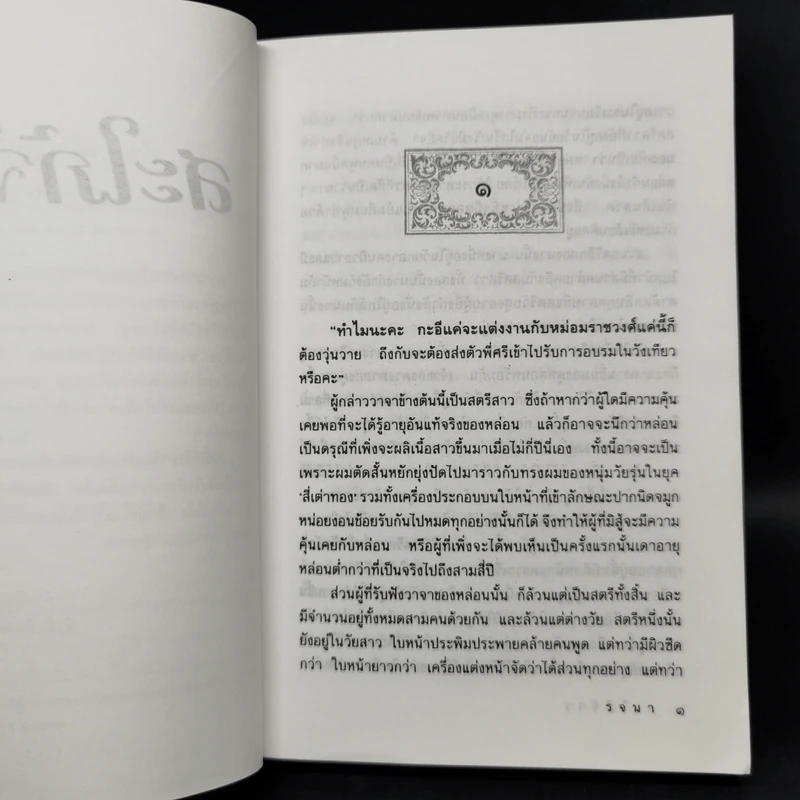 ๑
"ทำไมนะคะ กะอีแค่จะแต่งงานกับหม่อมราชวงศ์แค่นี้ก็
ต้องวุ่นวาย ถึงกับจะต้องส่งตัวพี่ศรีเข้าไปรับการอบรมในวังเทียว
หรือคะ"
ผู้กล่าววาจาข้างต้นนี้เป็นสตรีสาว ซึ่งถ้าหากว่าผู้ใดมีความคุ้น
เคยพอที่จะได้รู้อายุอันแท้จริงของหล่อน แล้วก็อาจจะนึกว่าหล่อน
เป็นดรุณีที่เพิ่งจะผลิเนื้อสาวขึ้นมาเมื่อไม่กี่ปีนี่เอง ทั้งนี้อาจจะเป็น
เพราะผมตัดสั้นหยักยุ่งปัดไปมาราวกับทรงผมของหนุ่มวัยรุ่นในยุค
'สี่เต่าทอง' รวมทั้งเครื่องประกอบบนใบหน้าที่เข้าลักษณะปากนิดจมูก
หน่อยงอนช้อยรับกันไปหมดทุกอย่างนั้นก็ได้ จึงทำให้ผู้ที่มิสู้จะมีความ
คุ้นเคยกับหล่อน หรือผู้ที่เพิ่งจะได้พบเห็นเป็นครั้งแรกนั้นเดาอายุ
หล่อนต่ำกว่าที่เป็นจริงไปถึงสามสี่ปี
ส่วนผู้ที่รับฟังวาจาของหล่อนนั้น ก็ล้วนแต่เป็นสตรีทั้งสิ้น และ
มีจำนวนอยู่ทั้งหมดสามคนด้วยกัน และล้วนแต่ต่างวัย สตรีหนึ่งนั้น
ยังอยู่ในวัยสาว ใบหน้าประพิมประพายคล้ายคนพูด แต่ทว่ามีผิวซีด
กว่า ใบหน้ายาวกว่า เครื่องแต่งหน้าจัดว่าได้ส่วนทุกอย่าง แต่ทว่า
รจนา ๑